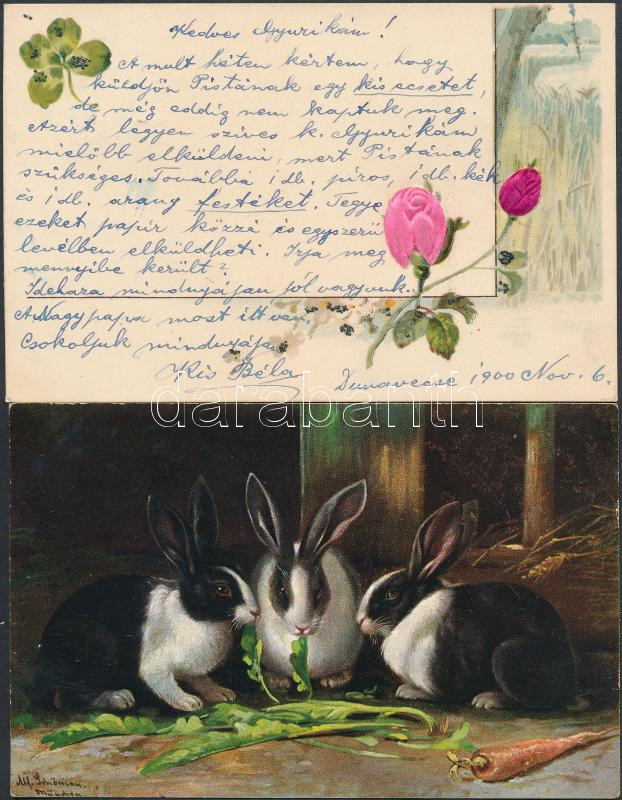 Kedves Gyurikám!
A mult héten kértem, hogy
küldjön Pistának egy kis ecsetet,
de még eddig nem kaptuk meg.
Azért legyen szíves k. Gyurikám
mielőbb elküldeni, mert Pistának
szükséges. Továbbá 1 db. piros, 1 db. kék
és 1 db. arany festéket. Tegye
ezeket papír közzé és egyszerű
levélben elküldheti. Irja meg
mennyibe került?
Idehaza mindnyájan jól vagyunk.
A Nagypapa most itt van.
Csokoljuk mindnyájan
Kis Béla
Dunavecse 1900 Nov. 6.
darabanth
Alf. Schönian.
München